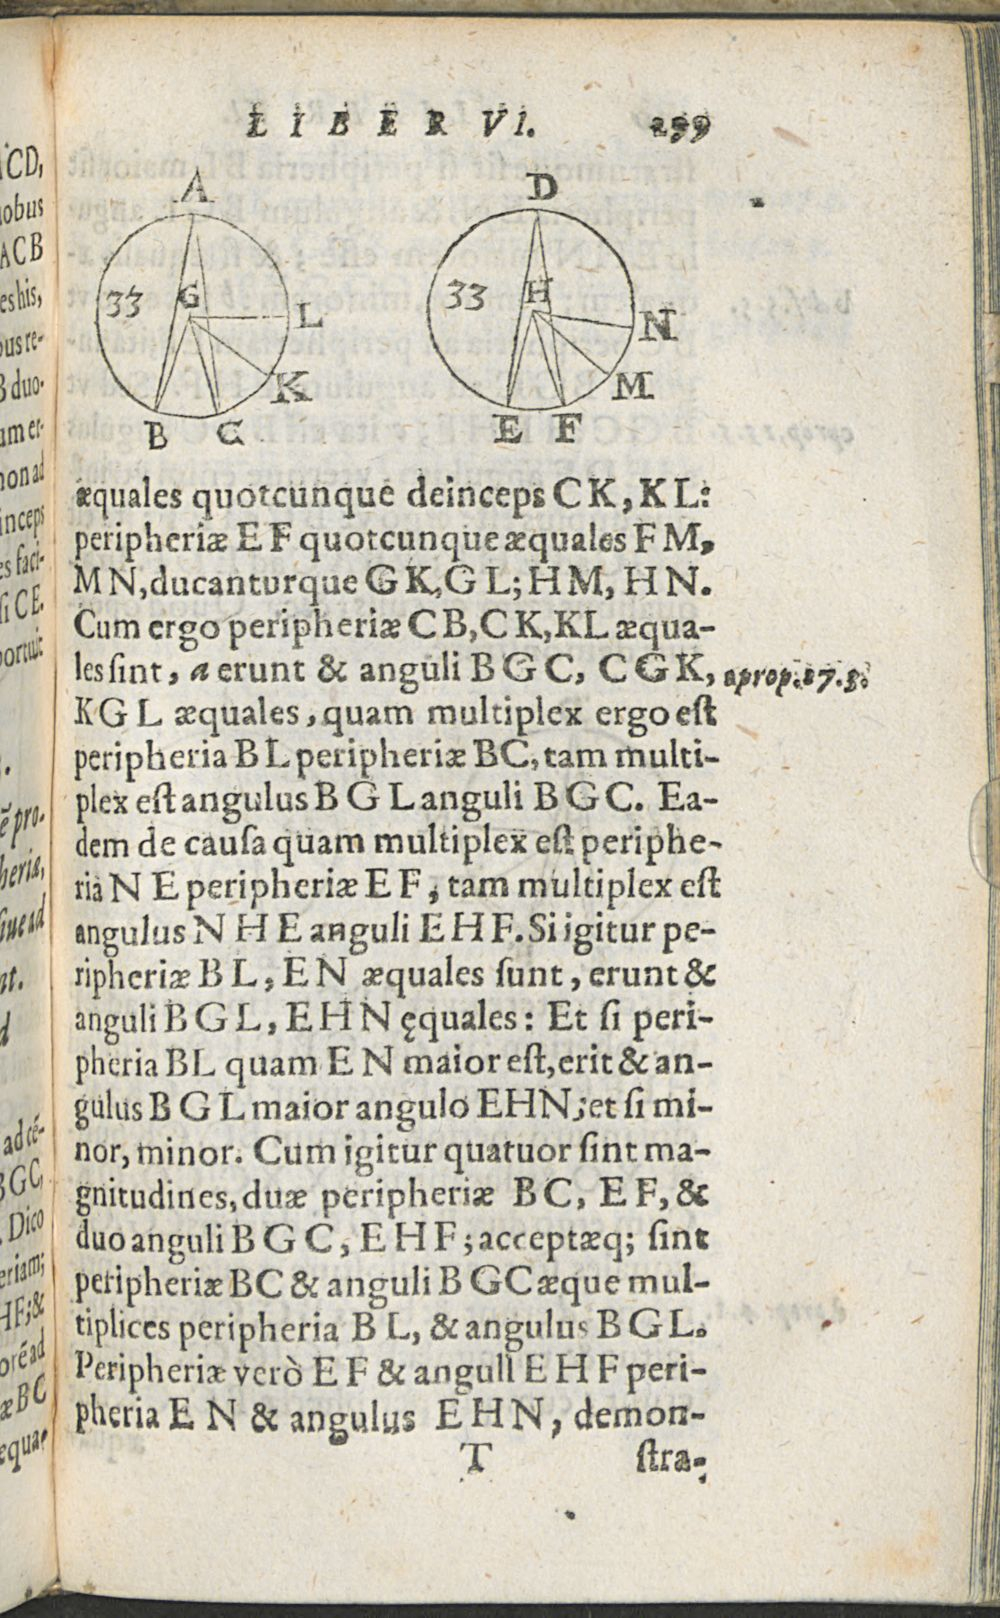 LIBER VI. 299
A D
33 G L 33 H N
K M
B C E F
æquales quotcunque deinceps C K, K L:
peripheriæ E F quotcunque æquales F M,
M N, ducanturque G K, G L; H M, H N.
Cum ergo peripheriæ C B, C K, KL æqua-
les ſint, a erunt & anguli B G C, C G K, aprop. 27. 3.
K G L æquales, quam multiplex ergo eſt
peripheria B L peripheriæ BC, tam multi-
plex eſt angulus B G L anguli B G C. Ea-
dem de cauſa quam multiplex eſt periphe-
ria N E peripheriæ E F, tam multiplex eſt
angulus N H E anguli E H F. Si igitur pe-
ripheriæ B L, E N æquales ſunt, erunt &
anguli B G L, E H N ęquales: Et ſi peri-
pheria BL quam E N maior eſt, erit & an-
gulus B G L maior angulo EHN; et ſi mi-
nor, minor. Cum igitur quatuor ſint ma-
gnitudines, duæ peripheriæ B C, E F, &
duo anguli B G C, E H F; acceptæq; ſint
peripheriæ BC & anguli B G C æque mul-
tiplices peripheria B L, & angulus B G L.
Peripheriæ verò E F & anguli E H F peri-
pheria E N & angulus E H N, demon-
T ſtra-
CD,
obus
ACB
es his,
us re-
B duo-
um er-
non ad
inceps
es faci-
ſi CE.
portuit
pro-
heriæ,
ſiue ad
nt.
d
ad cē-
BGC,
Dico
eriam;
HF; &
orē ad
æ BC
equa-